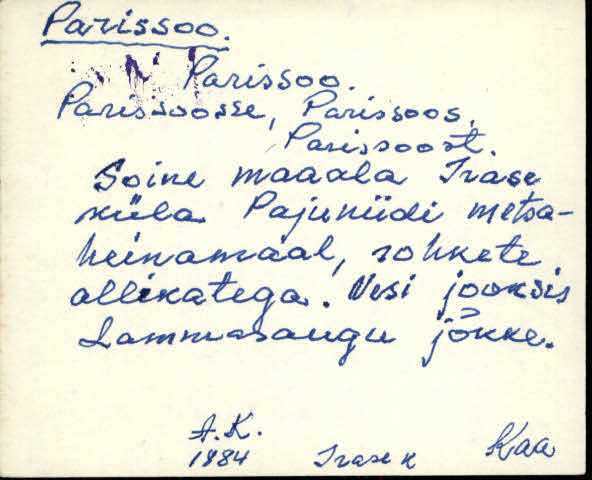 Parissoo.
Parissoo.
Parissoosse, Parissoos,
Parissoost.
Soine maaala Irase
küla Pajuniidi metsa-
heinamaal, rohkete
allikatega. Vesi jooksis
Lammasaugu jõkke.
A.K.
1984 Irase k Kaa